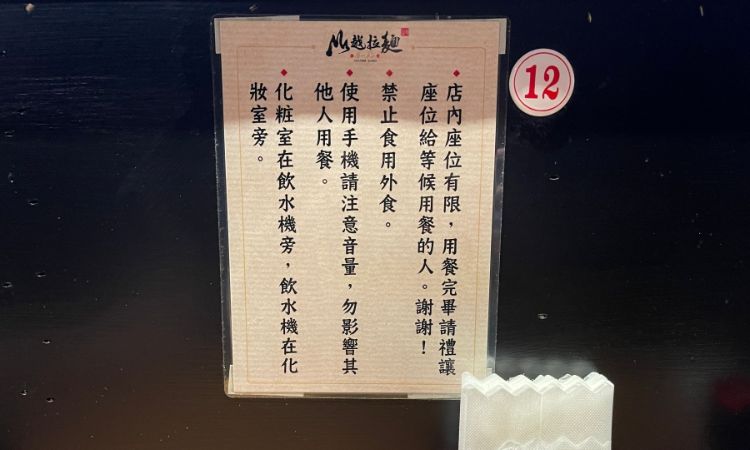 越拉麵
◆店內座位有限，用餐完畢請禮讓
座位給等候用餐的人。謝謝！
◆禁止食用外食。
◆使用手機請注意音量，勿影響其
他人用餐。
◆化粧室在飲水機旁，飲水機在化
妝室旁。
12